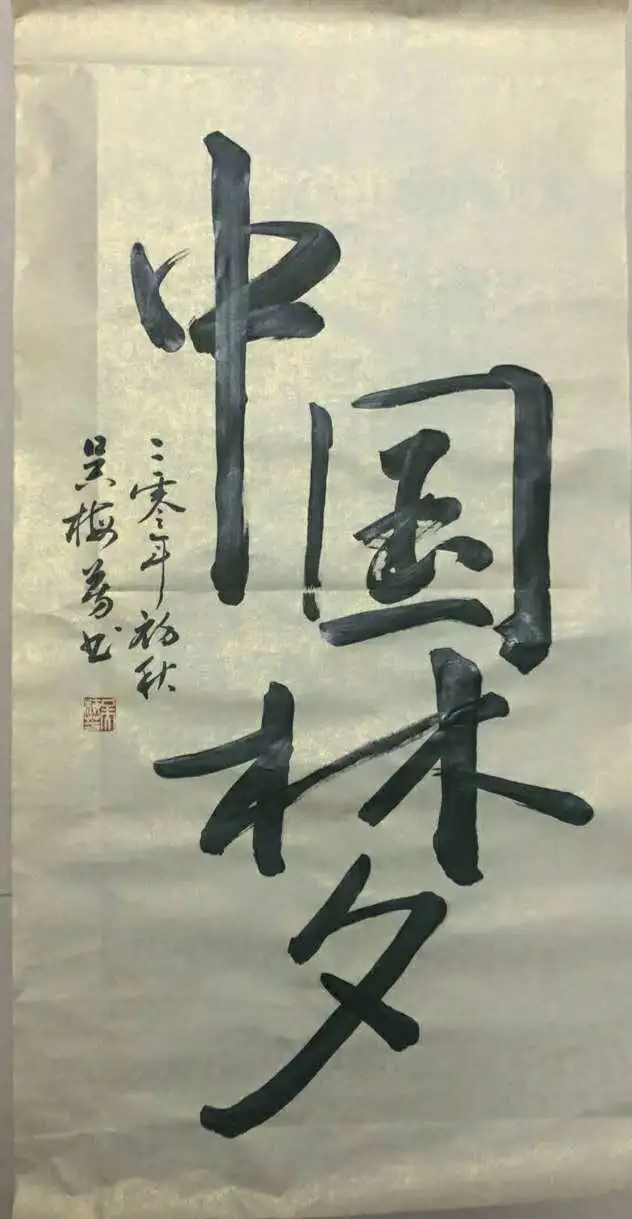 中国梦
二零二零年初秋
吴梅 书